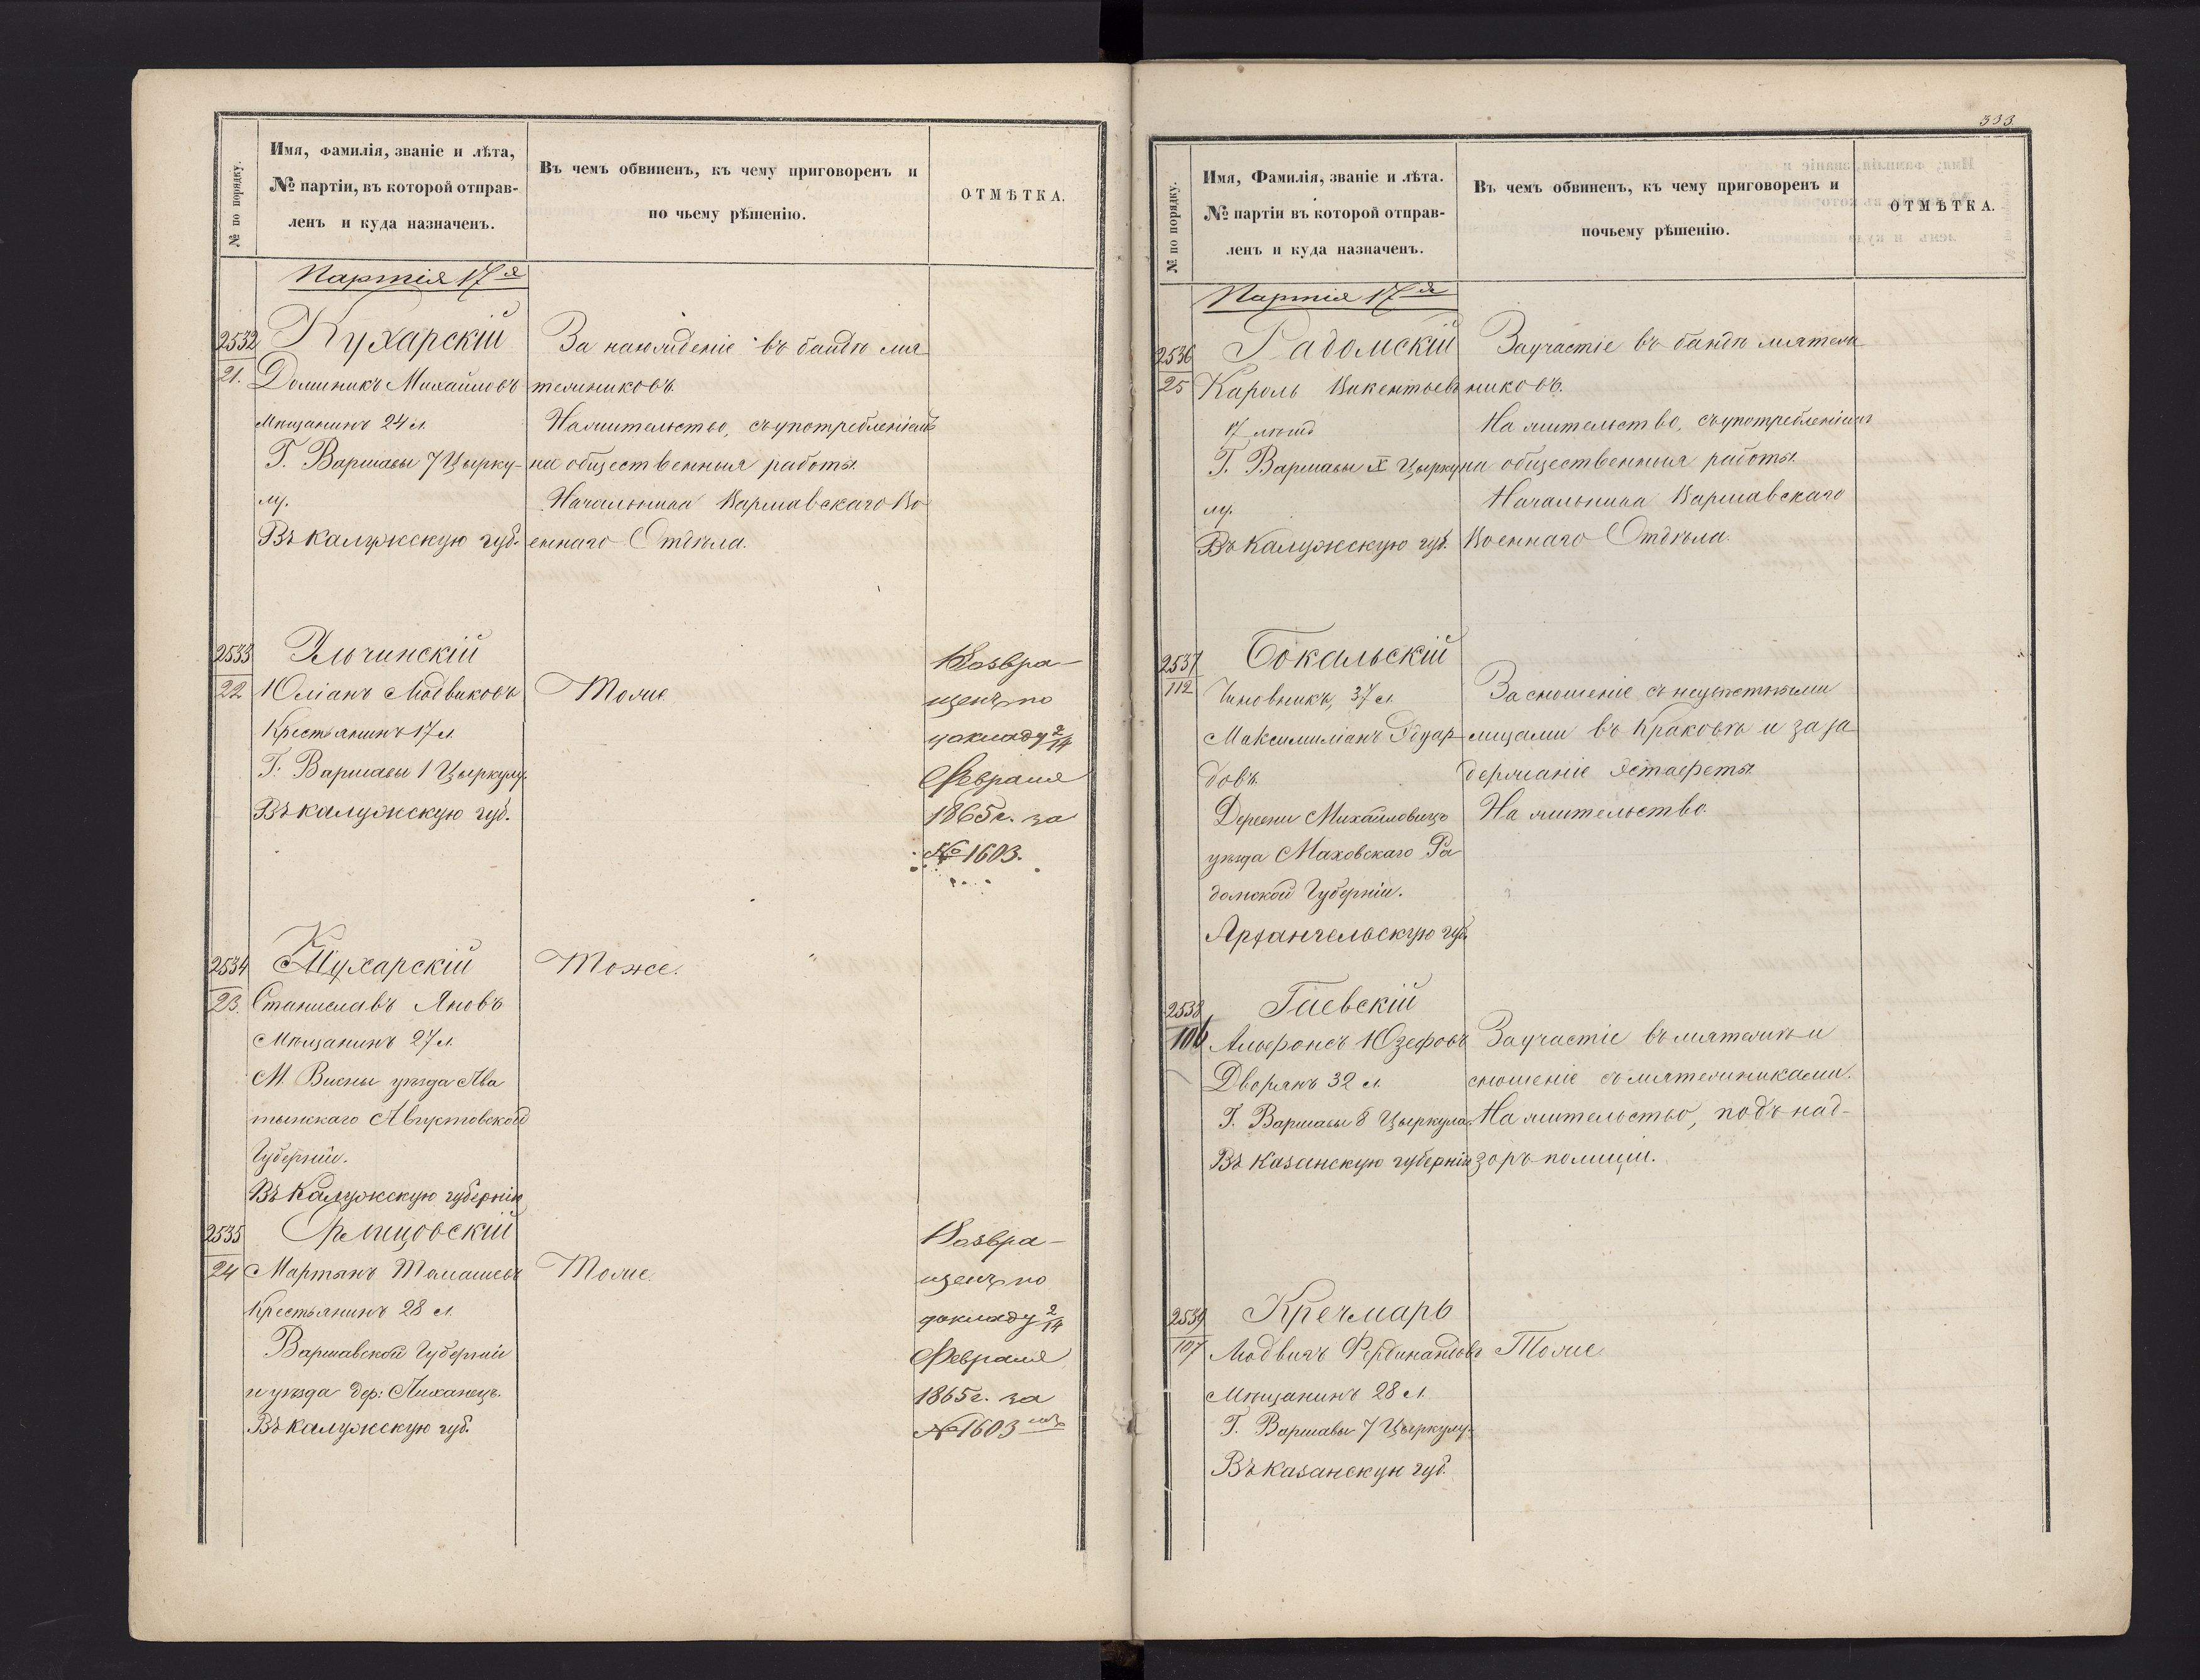 № по порядку.
Имя, фамилія, званіе и лѣта,
№ партіи, въ которой отправ-
ленъ и куда назначенъ.
Въ чемъ обвиненъ, къ чему приговоренъ и
по чьему рѣшенію.
ОТМѢТКА.
Партія 17я
2532
21.
Кухарскій
Доминикъ Михайловъ
Мѣщанинъ 24 л.
Г. Варшавы 7 Цырку-
лу.
Въ калужскую губ.
За нахожденіе въ бандѣ мя
тежниковъ.
На жительство, съ употребленіемъ
на общественныя работы.
Начальника Варшавскаго Во
еннаго Отдѣла.
2533
22
Юліанъ Людвиковъ
Крестьянинъ 17 л.
Г. Варшавы 1 Цыркулу.
Въ калужскую губ.
Тоже
Возвра-
щенъ по
докладу 2/14
Февраля
1865г. за
№ 1603.
2534
23.
Кухарскій
Станиславъ Яновъ
Мѣщанинъ 27 л.
М. Визны уѣзда
Августовской
Губерніи.
Въ Калужскую губернію
Тоже.
2535
24
Мартынъ Томашевъ
Крестьянинъ 28 л.
Варшавской Губерніи
и уѣзда дер:
Въ калужскую губ.
Тоже.
Возвра-
щенъ по
докладу 2/14
Февраля
1865г. за
№ 1603
333.
№ по порядку.
Имя, Фамилія, званіе и лѣта.
№ партіи въ которой отправ-
ленъ и куда назначенъ.
Въ чемъ обвиненъ, къ чему приговоренъ и
почьему рѣшенію.
ОТМѢТКА.
Партія 17я
2536
25
Радомскій
Кароль Викентьевъ
17 лѣтъ
Г. Варшавы Цырку
лу.
Въ Калужскую губ.
За участіе въ бандѣ мятеж
никовъ.
На жительство, съ употребленіемъ
на общественныя работы.
Начальника Варшавскаго
Военнаго Отдѣла.
2537
112
Бокальскій
Чиновникъ, 37 л.
Максимиліанъ Эдуар
довъ.
Деревни Михайловицъ
уѣзда Мѣховскаго Ра
домской Губерніи.
Архангельскую губ.
За сношеніе съ
лицами въ Краковѣ и за за
держаніе эстафеты.
На жительство.
2538
106
Гаевскій
Альфонсъ Юзефовъ
Дворянъ 32 л.
Г. Варшавы 8 Цыркула.
Въ Казанскую губернію
За участіе въ мятежѣ и
сношеніе съ мятежниками.
На жительство, подъ над-
зоръ полиціи.
2539
107
Кречмаръ
Людвигъ Фердинандовъ
Мѣщанинъ 28 л.
Г. Варшавы 7 Цыркулу.
Въ Казанскую губ.
Тоже